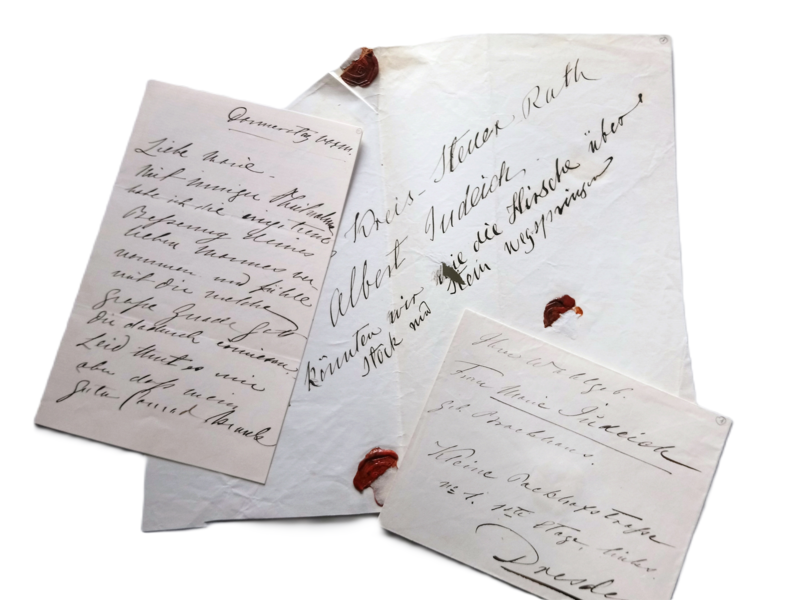 Donnerstag
Liebe Marie.
Mit inniger Theilnahme
habe ich die
Besserung Deines
lieben Mannes ver
nommen und fühle
mit Dir welche
große Freude
Dir dadurch
Leid thut es mir
aber daß mein
guter Conrad
Kreis-Steuer Rath
Albert Judeich
könnten wir wie die Hirsche über
Stock und Stein wegspringen
Ihro Wohlgeb.
Frau Marie Judeich
geb. Brockhaus.
Kleine Packhofstrasse
No 1. Etage, links.
Dresden